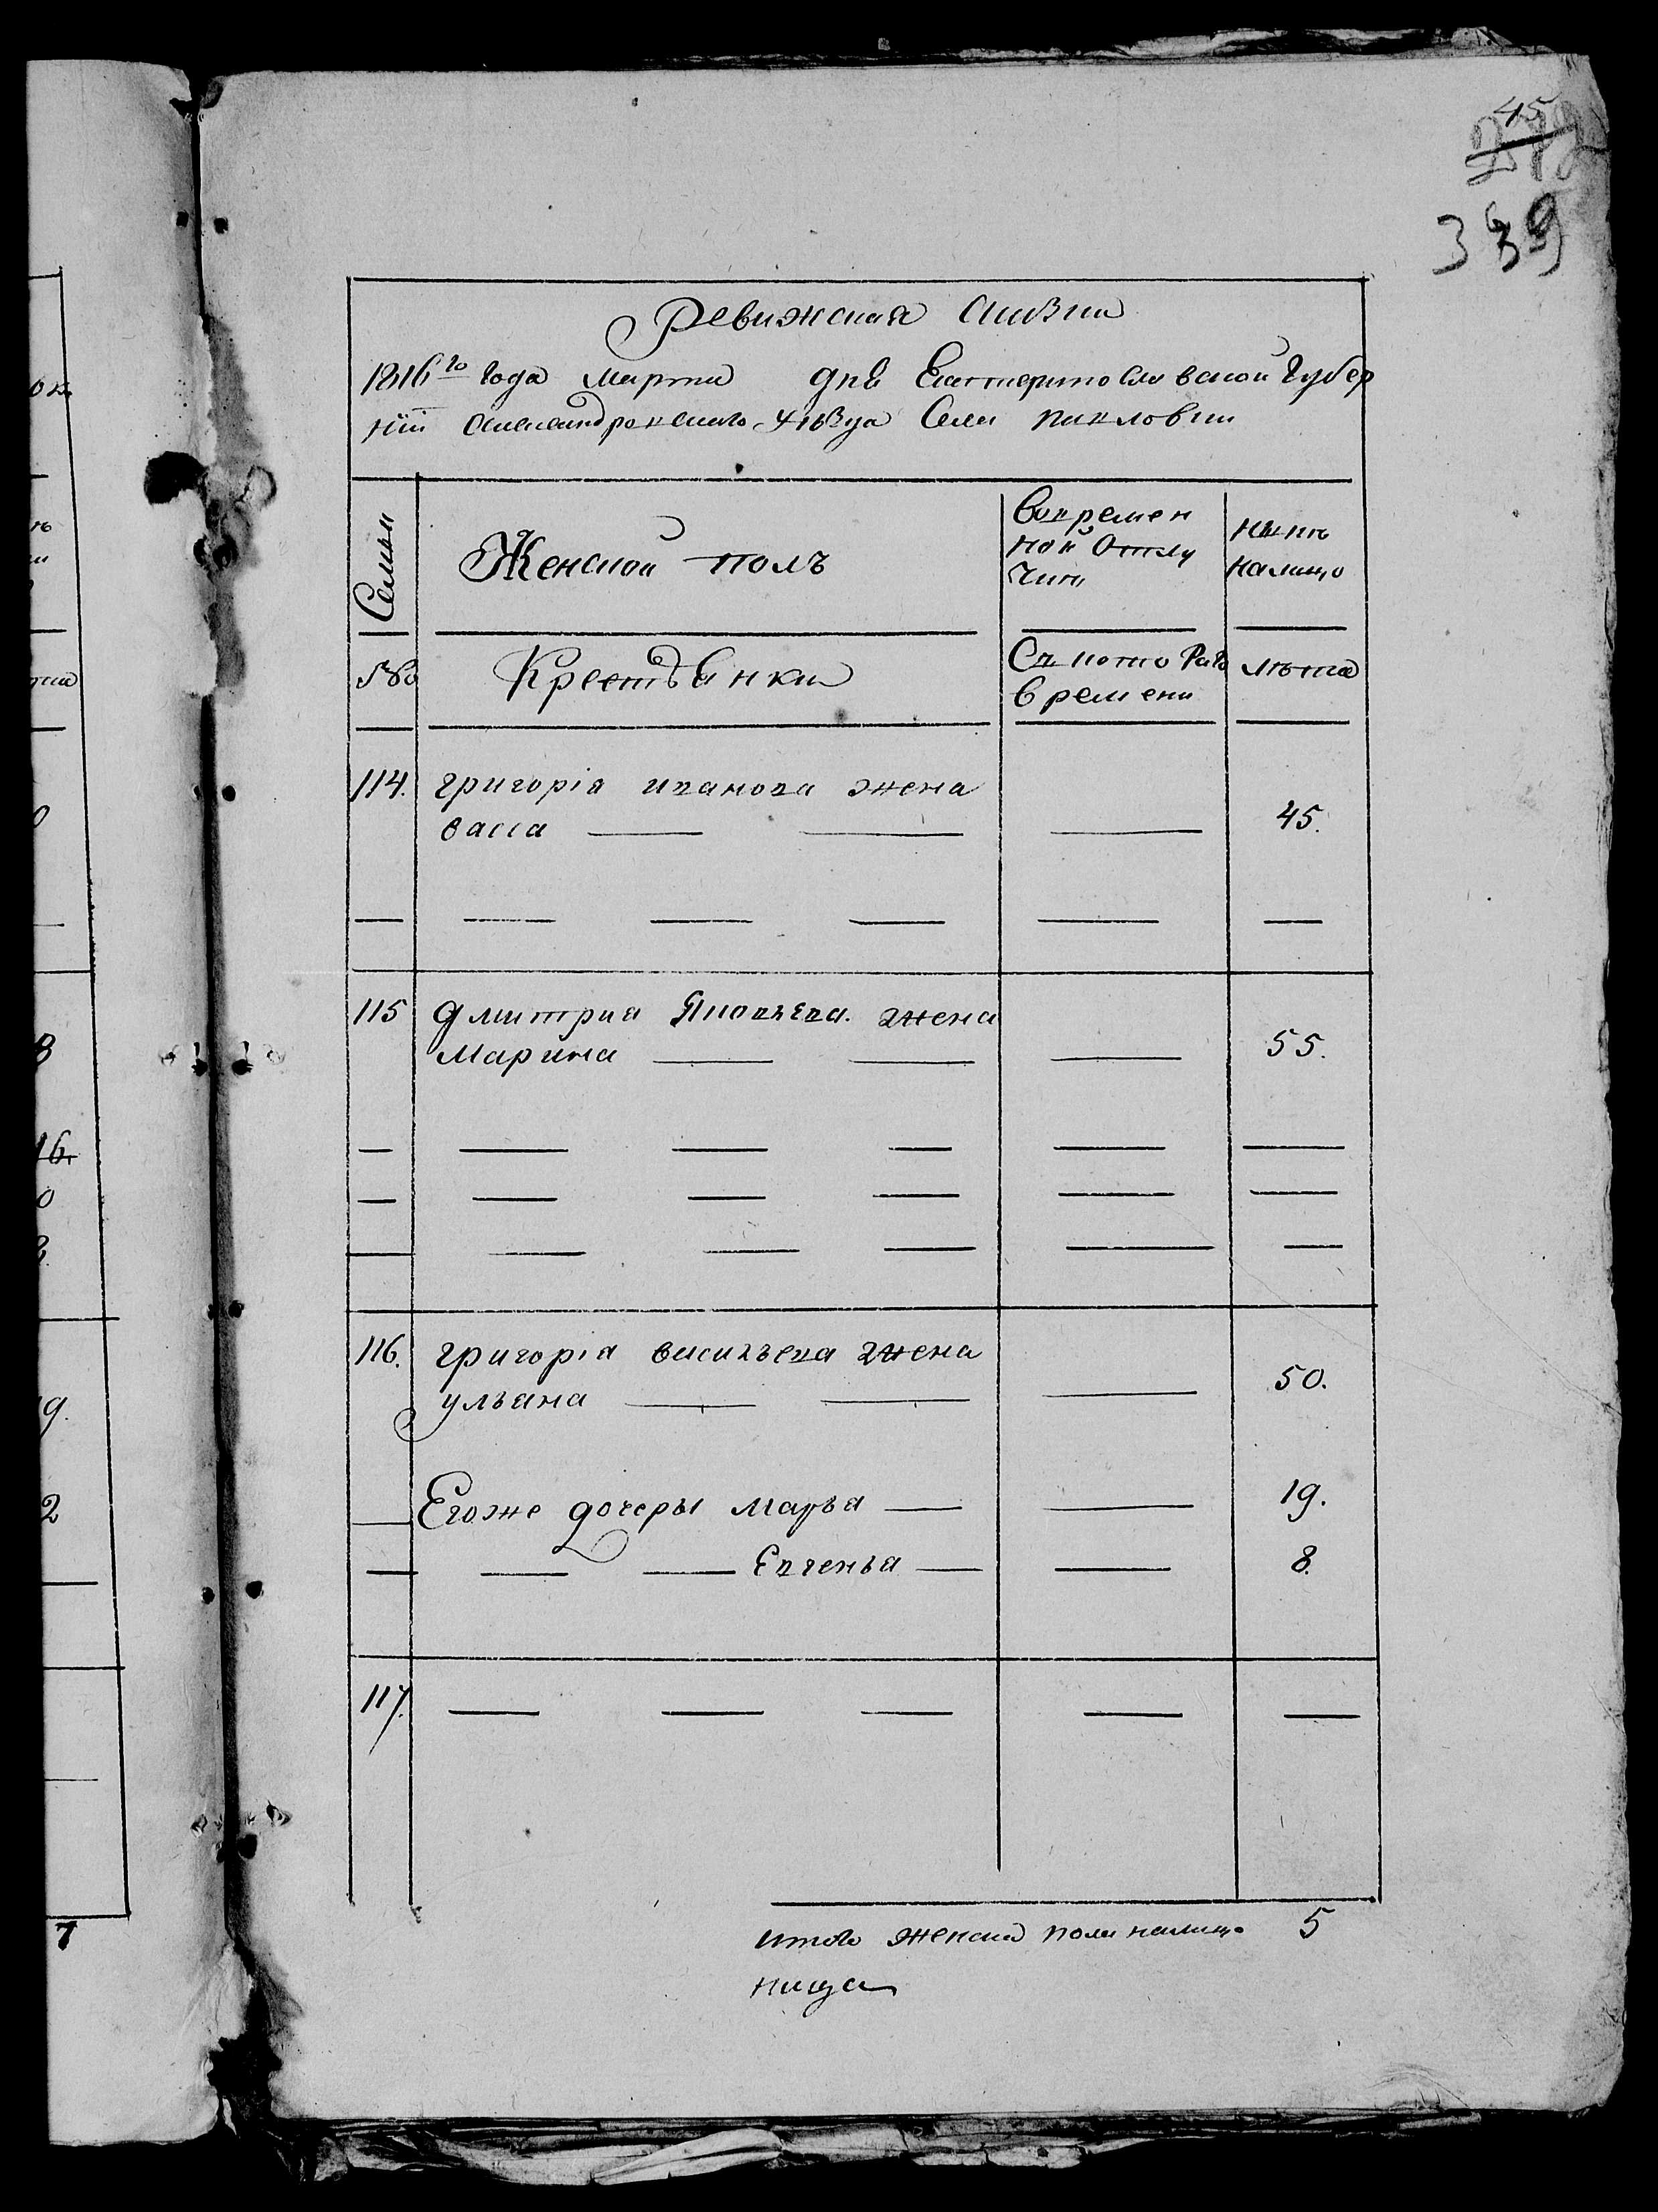 45
339
Ревижская Сказка
1816го Года Марта дня Екатеринославской Губер
нïи Александровскаго уѣзда Села Павловки
Семьи
Женской полъ
Вовремен
ной отлу
чки
нынѣ
налицо
№
Крестьянки
Съ котораго
времени
лѣта
114. григорія иванова жена
васса 45.
115 Дмитрия Яковлева. жена
Марина 55.
116. григорія васильева жена
ульяна 50.
Егоже дочеры Марья 19.
Евгенья 8.
117.
итого женска пола налицо 5
7